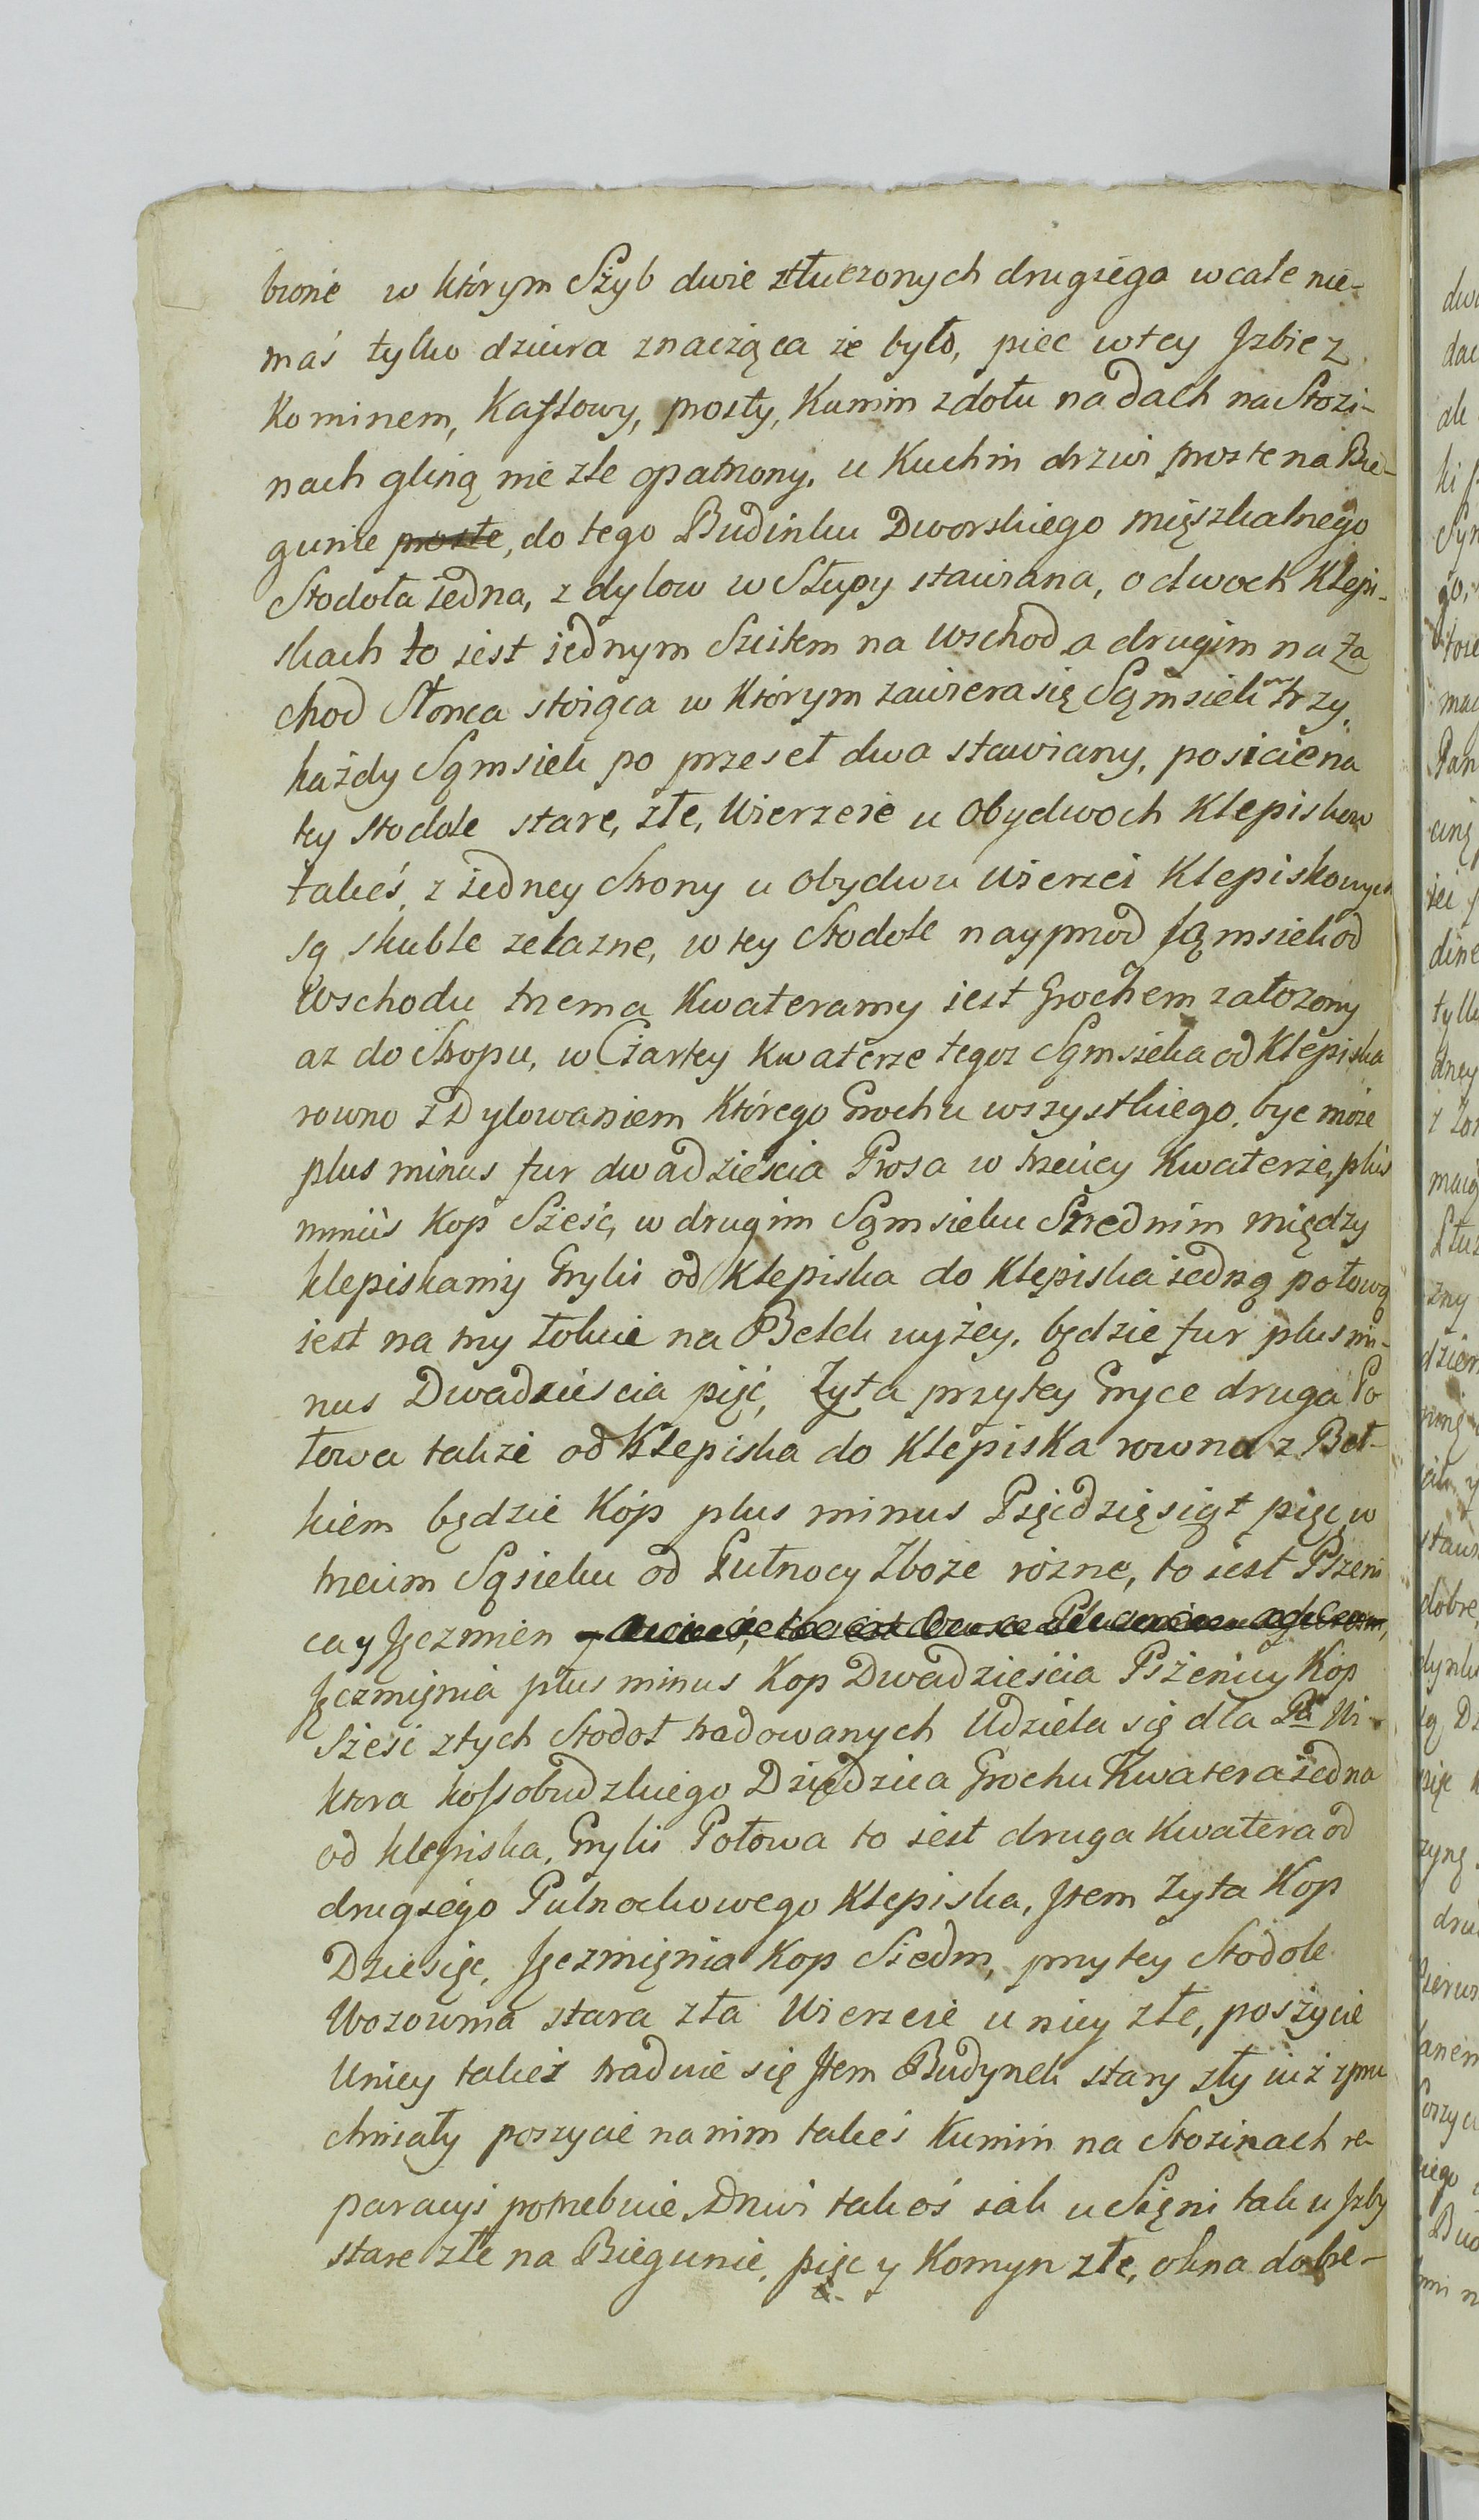 bione w którym Szyb dwie ztłuczonych drugiego wcale nie-
maś tylko dziura znacząca że było, piec wtey Jzbie z
Kominem, Kaflowy, prosty, Kumin zdołu na dach na Stozi-
nach gliną nie zle opatrzony, u Kuchni drzwi proste na Bie-
gunie proste, do tego Budinku Dworskiego mięszkalnego
Stodoła iedna, z dylow w Słupy stawiana, o dwoch Klepi-
skach to iest iednym Scitem na Wschod a drugim na Za
chod Słonca stoiąca w Którym zawiera się Sąmsiek trzy,
każdy Sąmsiek po przeseł dwa stawiany, posicie na
tey stodole stare, złe, Wierzeie u obydwoch Klepiskow
takieś, z iedney strony u obydwu Wierzei Klepiskowych
są skuble zelazne, w tey Stodole nayprzod sąmsiek od
Wschodu trzema Kwateramy iest Grochem załozony
az do Stropu, w Czartey Kwaterze tegoz Sąmsieka od Klepiska
rowno z Dylowaniem Którego Grochu wszystkiego, byc może
plus minus fur dwadzieścia Prosa w trzeciey Kwaterze, plus
minus Kop Sześć, w drugim Sąmsieku Srzednim między
klepiskamy Gryki od Klepiska do Klepiska iedną połową
iest na try łokcie na Belek wyżey, będzie fur plus mi-
nus Dwadziescia pięć, Zyta przytey Gryce druga Po
łowa także od Klepiska do Klepiska rowno z Bel-
kiem będzie Kóp plus minus Pięcdzięsiąt pięc w
trzeim Sąsieku od Pułnocy Zboze rożne, to iest Pszeni
ca y Jęczmien
Jęczmięnia plus minus Kop Dwadzieścia Pszenicy Kop
Sześć ztych Stodoł tradowanych Udziela się dla Pa Wi-
ktora Kossobudzkiego Dziędzica Grochu Kwatera iedna
od klepiska, Gryki Połowa to iest druga Kwatera od
drugiego Pulnockowego Klepiska, Jtem Zyta Kop
Dziesięc, Jęczmięnia Kop Siedm, przytey Stodole
Wozownia stara zła Wierzeie u niey złe, poszycie
Uniey takież traduie się Jtem Budynek stary zły iuż spru
chniały poszycie na nim takieś Kumin na Stozinach re-
paracyi potrzebuie, Drzwi takoś iak u Sięni tak u Jzby
stare złe na Biegunie, pięc y Komyn złe, okna dobre-